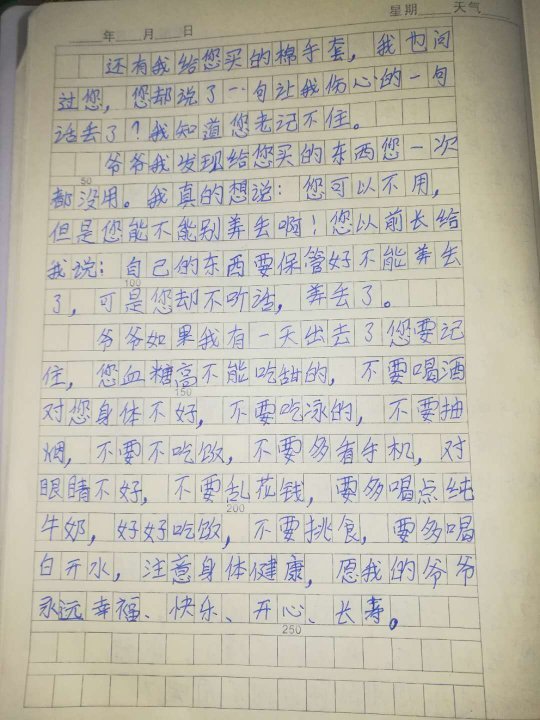 年 月 日 星期 天气
还有我给您买的棉手套，我也问
过您，您却说了一句让我伤心的一句
话丢了？我知道您老记不住。
爷爷我发现给您买的东西您一次
50
都没用。我真的想说：您可以不用，
但是您能不能别弄丢啊！您以前长给
我说：自己的东西要保管好不能弄丢
100
了，可是您却不听话，弄丢了。
爷爷如果我有一天出去了您要记
住，您血糖高不能吃甜的，不要喝酒
150
对您身体不好，不要吃泳的，不要抽
烟，不要不吃饭，不要多看手机，对
眼睛不好，不要乱花钱，要多喝点纯
200
牛奶，好好吃饭，不要挑食，要多喝
白开水，注意身体健康，愿我的爷爷
永远幸福、快乐、开心、长寿。
250